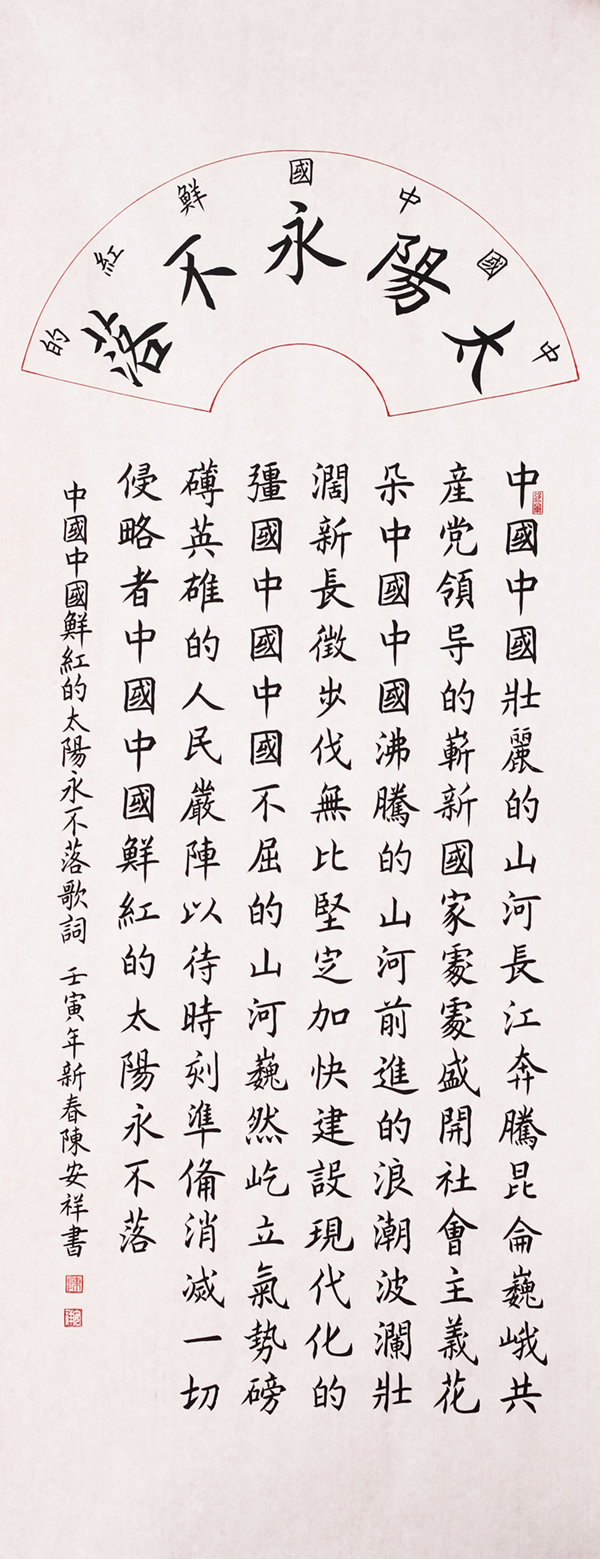 中國中國鮮紅的
太陽永不落
中國中國壯麗的山河長江奔騰昆侖巍峨共
産党領导的嶄新國家處處盛開社會主義花
朵中國中國沸騰的山河前進的浪潮波瀾壯
濶新長徵步伐無比堅定加快建設現代化的
彊國中國中國不屈的山河巍然屹立氣勢磅
礡英雄的人民嚴陣以待時刻準備消滅一切
侵略者中國中國鮮紅的太陽永不落
中國中國鮮紅的太陽永不落歌詞 壬寅年新春陳安祥書